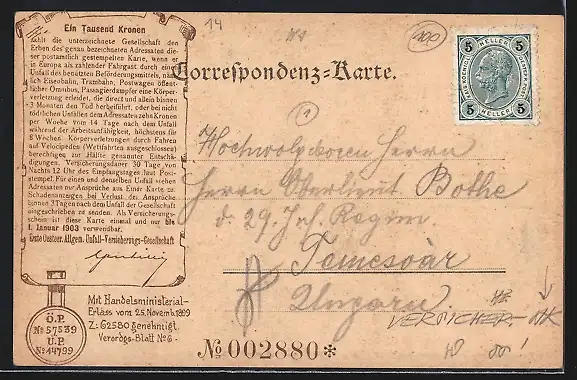 14
100
Ein Tausend Kronen
zahlt die unterzeichnete Gesellschaft den
Erben des genau bezeichneten Adressaten die-
ser postamtlich gestempelten Karte, wenn er
in Europa als zahlender Fahrgast durch einen
Unfall des benützten Beförderungsmittels, näm-
lich Eisenbahn, Trambahn, Postwagen öffent-
licher Omnibus, Passagierdampfer eine Körper-
verletzung erleidet, die direct und allein binnen
3 Monaten den Tod herbeiführt, oder bei nicht
tödtlichen Unfällen dem Adressaten zehn Kronen
per Woche vom 14 Tage nach dem Unfall
während der Arbeitsunfähigkeit, höchstens für
8 Wochen. Körperverletzungen durch Fahren
auf Velocipedes (Wettfahrten ausgeschlossen)
berechtigen zur Hälfte genannter Entschä-
digungen. Versicherungsdauer 30 Tage von
Nachts 12 Uhr des Empfangstages laut Post-
stempel. Für einen und denselben Unfall stehen
Adressaten nur Ansprüche aus Einer Karte zu.
Schadensanzeigen bei Verlust der Ansprüche
binnen 3 Tagen nach dem Unfall der Gesellschaft
eingeschrieben zu senden. Als Versicherungs-
schein ist diese Karte einmal und nur bis
1. Januar 1903 verwendbar.
Erste Oesterr. Allgem. Unfall-Versicherungs-Gesellschaft
Ö.P.
No 57539
U.P.
No 14799
Mit Handelsministerial-
Erlass vom 25. Novemb. 1899
Z: 62580 genehmigt.
Verordgs-Blatt No 6-
Correspondenz-Karte.
5 HELLER 5
5 HELLER 5
1
Hochwolgeboren Herrn
Herrn Oberlieut. Bothe
d. 29. Inf. Regim
Temesvár
Ungarn
VERSICHER.-
No 002880*